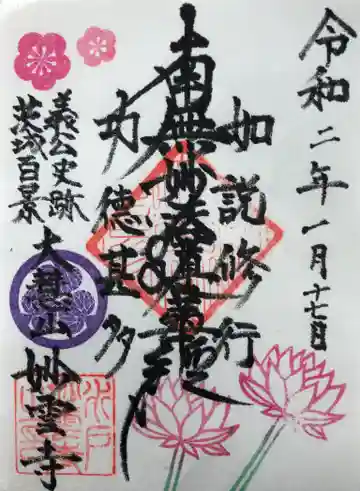 令和二年一月十七日
如説修行
南無妙法蓮華経
功徳甚多
義公史跡
茨城百景
妙雲寺
水戸